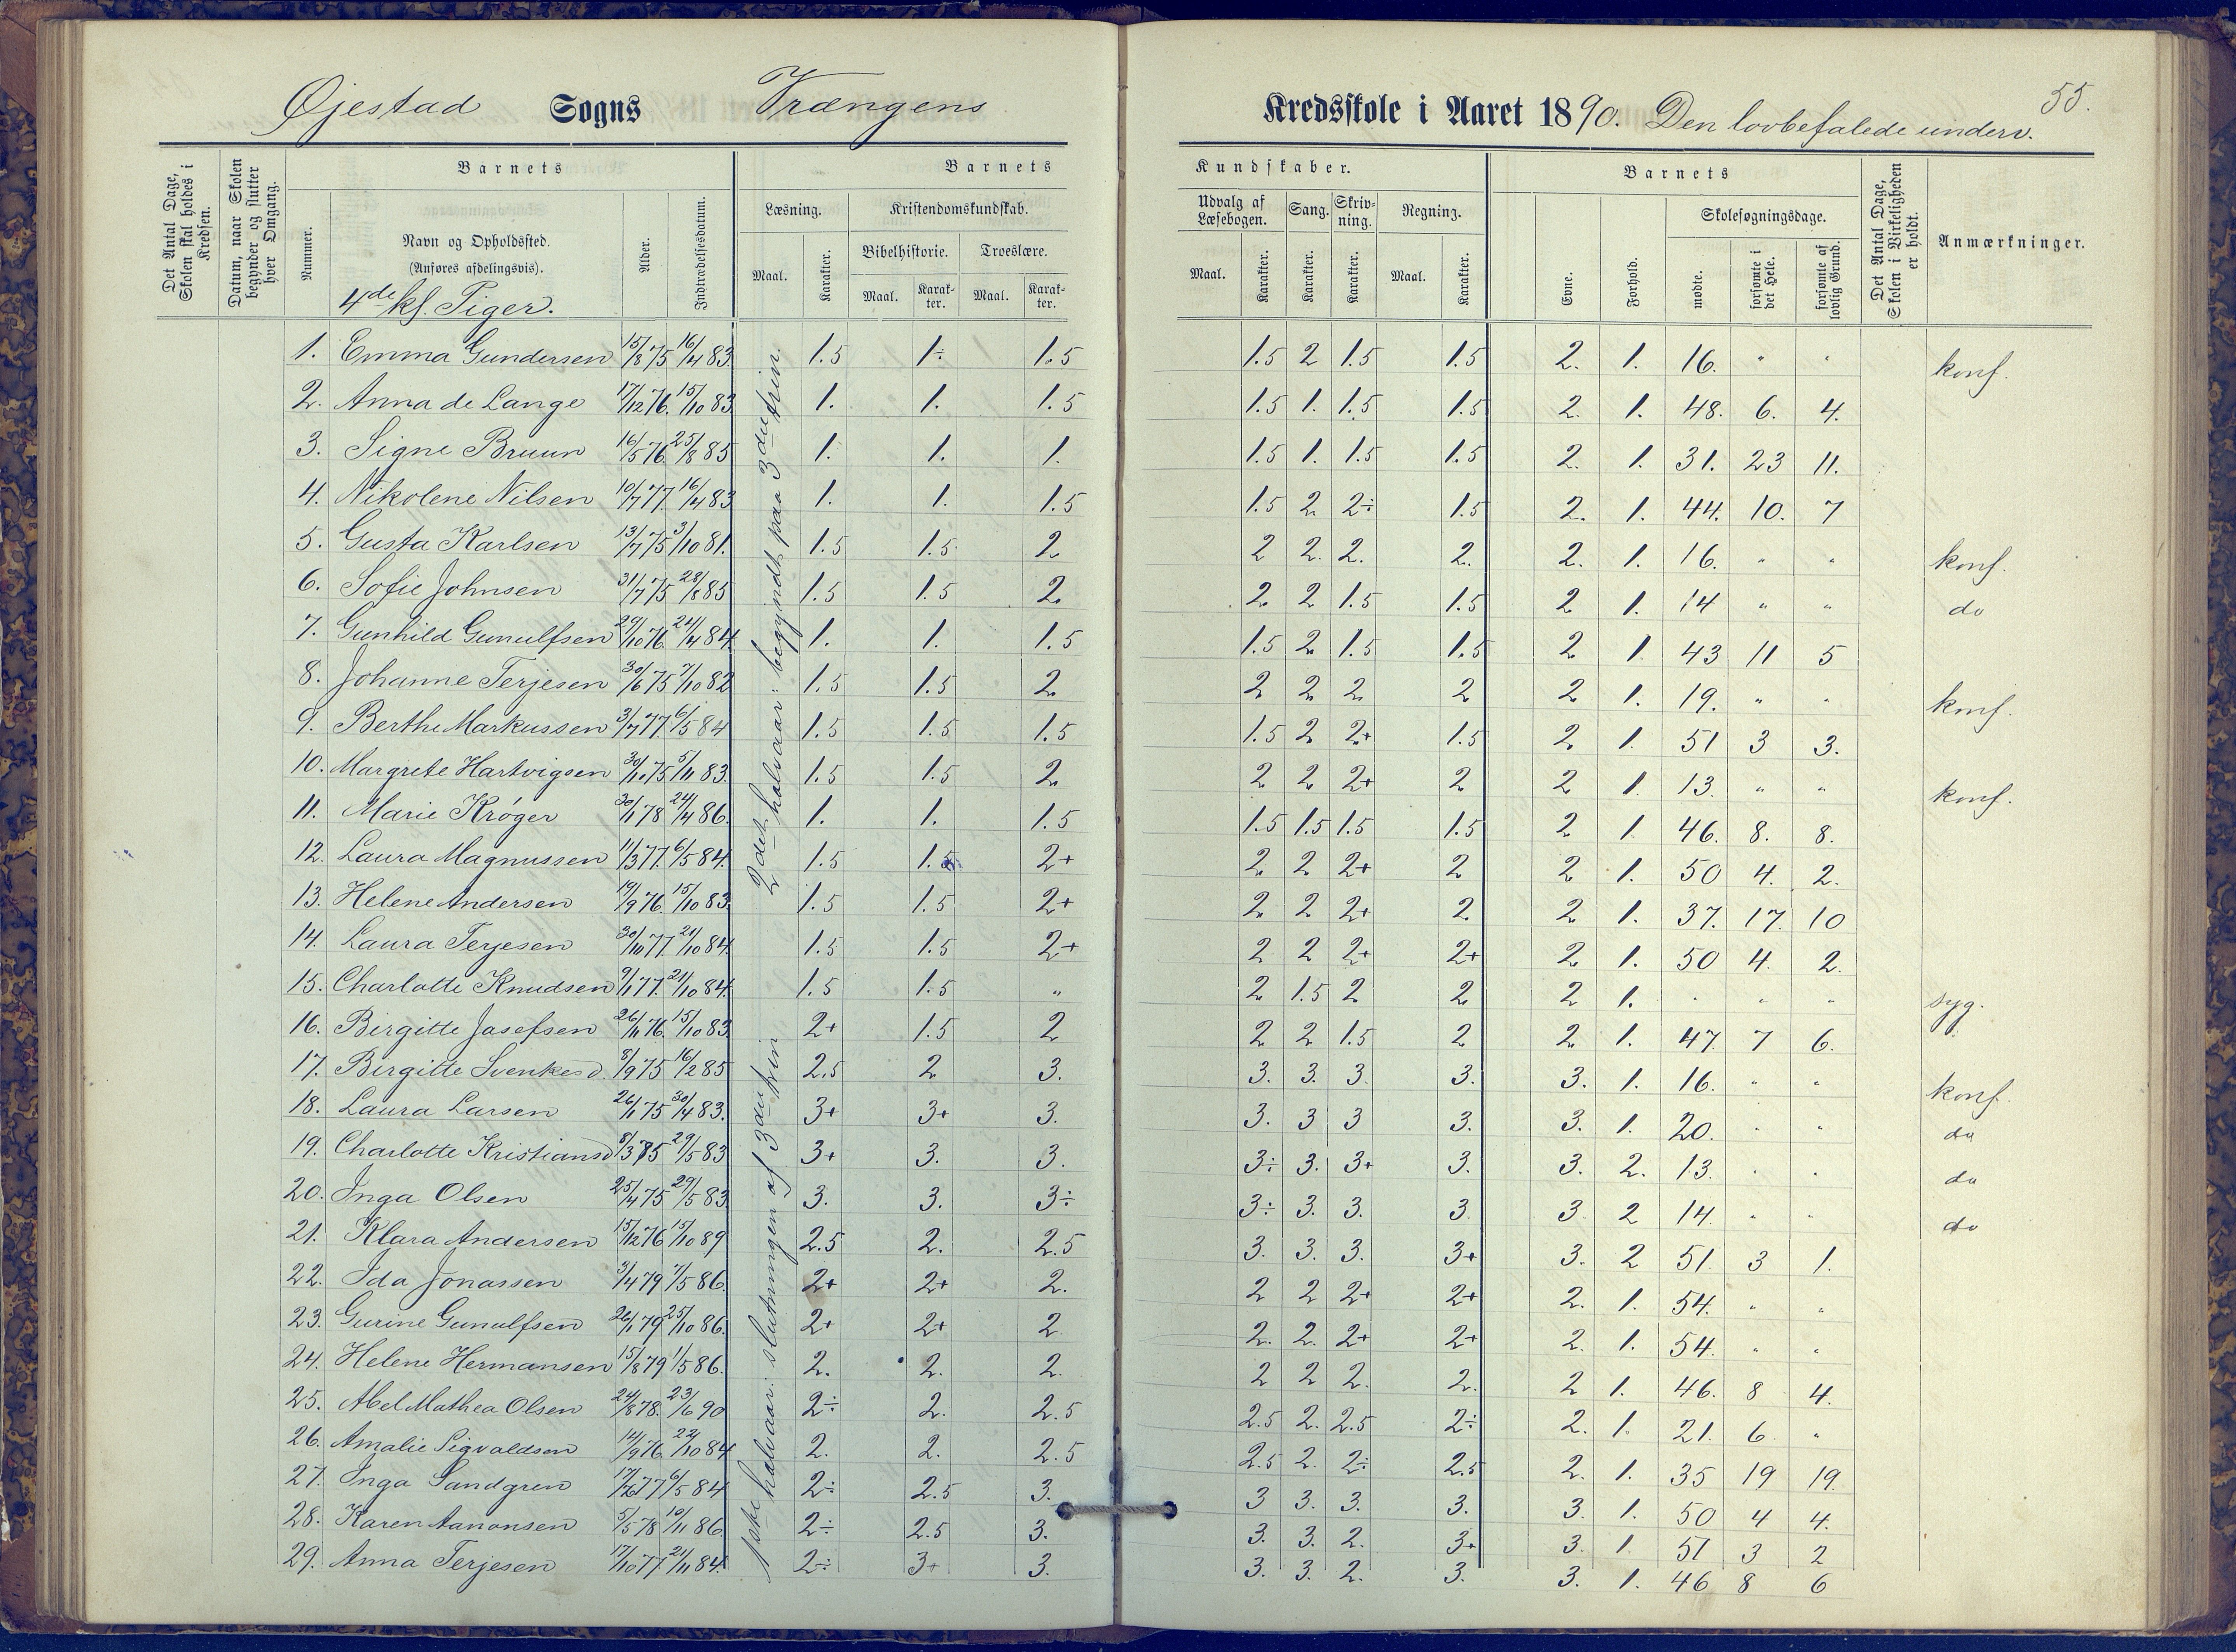 55.
Øjestad Sogns Vrængens Kredsskole i Aaret 1890. Den lovbefalede underv.
Det Antal Dage, Skolen skal holdes i Kredsen.
Datum, naar Skolen begynder og slutter hver Omgang.
Barnets
Nummer.
Navn og Opholdssted.
(Anføres afdelingsvis).
4de kl. Piger.
Alder.
Indtrædelsesdatum.
Barnets Kundskaber.
Læsning.
Maal.
Karakter.
Kristendomskundskab.
Bibelhistorie.
Maal.
Karakter.
Troeslære.
Maal.
Karakter.
Udvalg af Læsebogen.
Maal.
Karakter.
Sang.
Karakter.
Skrivning.
Karakter.
Regning.
Maal.
Karakter.
Barnets
Evne.
Forhold.
Skolesøgningsdage.
mødte.
forsømte i det Hele.
forsømte af lovlig Grund.
Det Antal Dage, Skolen i Virkeligheden er holdt.
Anmærkninger.
1. Emma Gundersen 15/8 75 16/4 83. 1.5 1÷ 1.5 1.5 2 1.5 1.5 2. 1. 16. " " konf.
2. Anna de Lange 17/12 76. 15/10 83. 1. 1. 1.5 1.5 1. 1.5 1.5 2. 1. 48. 6. 4.
3. Signe Bruun 16/5 76. 25/8 85 1. 1. 1. 1.5 1. 1.5 1.5 2. 1. 31. 23 11.
4. Nikolene Nilsen 10/7 77. 16/4 83 1. 1. 1.5 1.5 2 2÷ 1.5 2. 1. 44. 10. 7
5. Gusta Karlsen 13/7 75 3/10 81. 1.5 1.5 2 2 2. 2. 2. 2. 1. 16. " " konf.
6. Sofie Johnsen 31/7 75 28/8 85 1.5 1.5 2. 2 2 1.5 1.5 2 1. 14 " " do
7. Gunhild Gunulfsen 29/10 76. 24/4 84. 1. 1. 1.5 1.5 2 1.5 1.5 2 1. 43 11 5
8. Johanne Terjesen 30/6 75 7/10 82 1.5 1.5 2. 2 2 2 2 2 1. 19. " " konf.
9. Berthe Markussen 3/7 77. 6/5 84 1.5 1.5 1.5 1.5 2 2+ 1.5 2. 1. 51 3 3.
10. Margrete Hartvigsen 30/10 75 5/11 83. 1.5 1.5 2. 2 2 2+ 2 2 1. 13. " " konf.
11. Marie Krøger 30/1 78 24/4 86. 1. 1. 1.5 1.5 1.5 1.5 1.5 2 1. 46. 8. 8.
12. Laura Magnussen 11/3 77. 6/5 84. 1.5 1.5 2+ 2 2 2+ 2 2 1. 50 4. 2.
13. Helene Andersen 19/9 76. 15/10 83. 1.5 1.5 2+ 2 2 2+ 2. 2 1. 37. 17. 10
14. Laura Terjesen 30/10 77. 21/10 84. 1.5 1.5 2+ 2 2 2+ 2+ 2 1. 50 4. 2.
15. Charlotte Knudsen 9/1 77. 21/10 84. 1.5 1.5 " 2 1.5 2 2 2 1. " " " syg.
16. Birgitte Josefsen 26/11 76. 15/10 83. 2+ 1.5 2 2 2 1.5 2 2. 1. 47. 7 6.
17. Birgitte Svenkesd. 8/9 75 16/2 85 2.5 2 3. 3. 3. 3. 3. 3. 1. 16. " " konf.
18. Laura Larsen 26/1 75 30/4 83. 3+ 3+ 3. 3. 3 3 3. 3. 1. 20. " " do
19. Charlotte Kristiansd 8/3 75 29/5 83 3+ 3. 3. 3÷ 3. 3+ 3. 3. 2. 13. " " do
20. Inga Olsen 25/4 75 29/5 83. 3. 3. 3÷ 3÷ 3. 3. 3 3 2 14. " " do
21. Klara Andersen 15/12 76 15/10 89 2.5 2. 2.5 3. 3. 3. 3+ 3. 2 51. 3 1.
22. Ida Jonassen 3/4 79 7/5 86. 2+ 2+ 2. 2 2 2+ 2+ 2. 1. 54. " "
23. Gurine Gunulfsen 26/1 79 25/10 86. 2+ 2+ 2 2. 2. 2+ 2+ 2. 1. 54. " "
24. Helene Hermansen 15/8 79 1/5 86. 2. 2. 2. 2 2 2. 2. 2 1. 46. 8 4.
25. Abel Mathea Olsen 24/8 78. 23/6 90 2÷ 2. 2.5 2.5 2. 2.5 2÷ 2. 1. 21. 6. "
26. Amalie Sigvaldsen 14/9 76. 22/10 84 2. 2. 2.5 2.5 2. 2÷ 2.5 2. 1. 35 19 19.
27. Inga Sandgren 17/6 77 6/5 84 2÷ 2.5 3. 3 3. 3. 3. 3. 1. 50 4 4.
28. Karen Aanonsen 5/5 78 10/11 86. 2÷ 2.5 3. 3. 3. 2. 3+ 3. 1. 51 3 2
29. Anna Terjesen 17/10 77. 21/11 84. 2÷ 3+ 3. 3. 3. 2. 3. 3. 1. 46 8 6
1ste halvaar: slutningen af 3die trin
2det halvaar: begyndt paa 3die trin.